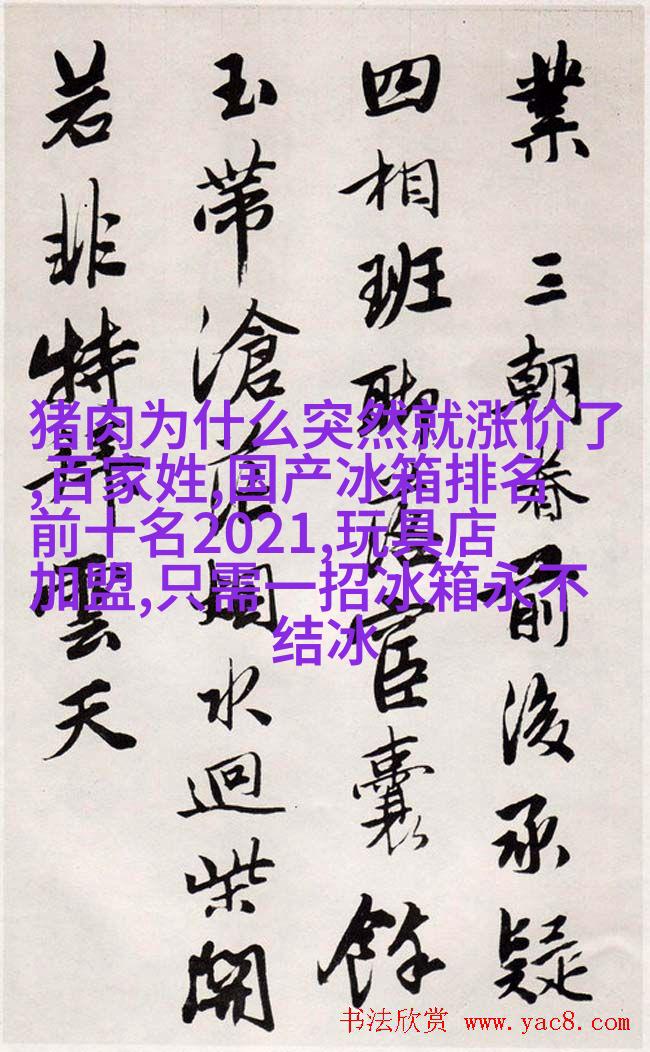 業 三朝眷前後承疑
四相班聯宦囊餘
玉帶滄烟水迴柴開
若非特雲天
猪肉为什么突然就涨价了
,百家姓,国产冰箱排名
前十名2021,玩具店
加盟,只需一招冰箱永不
结冰
书法欣赏 www.yac8.com